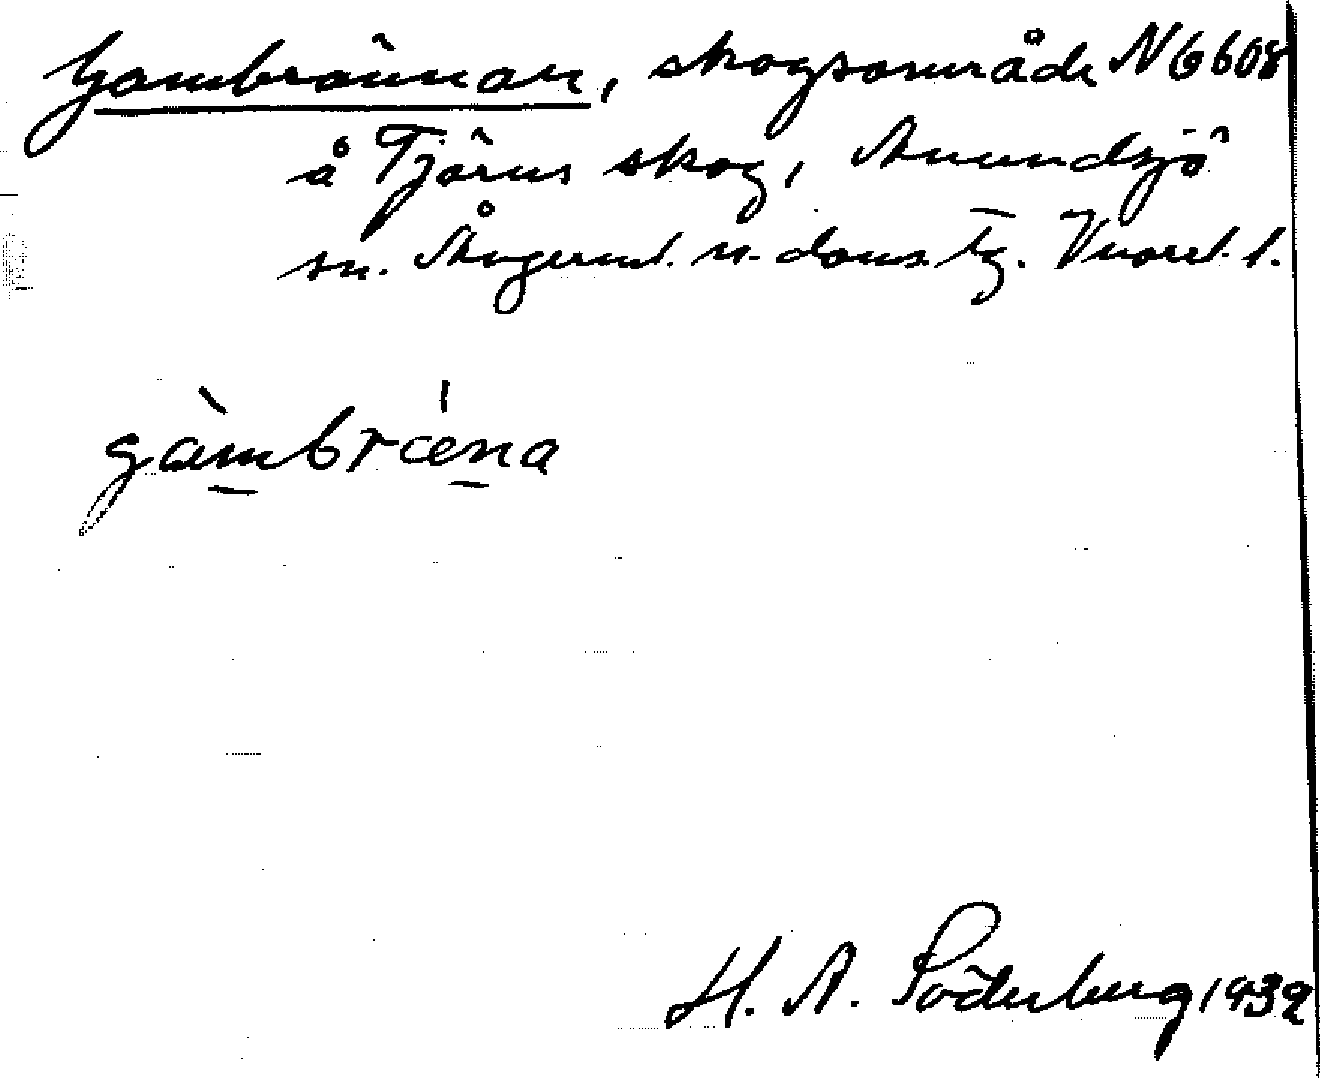 Gambrännan, skogsområde N 6608
å Tjärns skog, Anundsjö
sn. Ångerml. n. dans tg. Vuorel. l.
gàmbræ̀na
H. A. Söderberg 1932